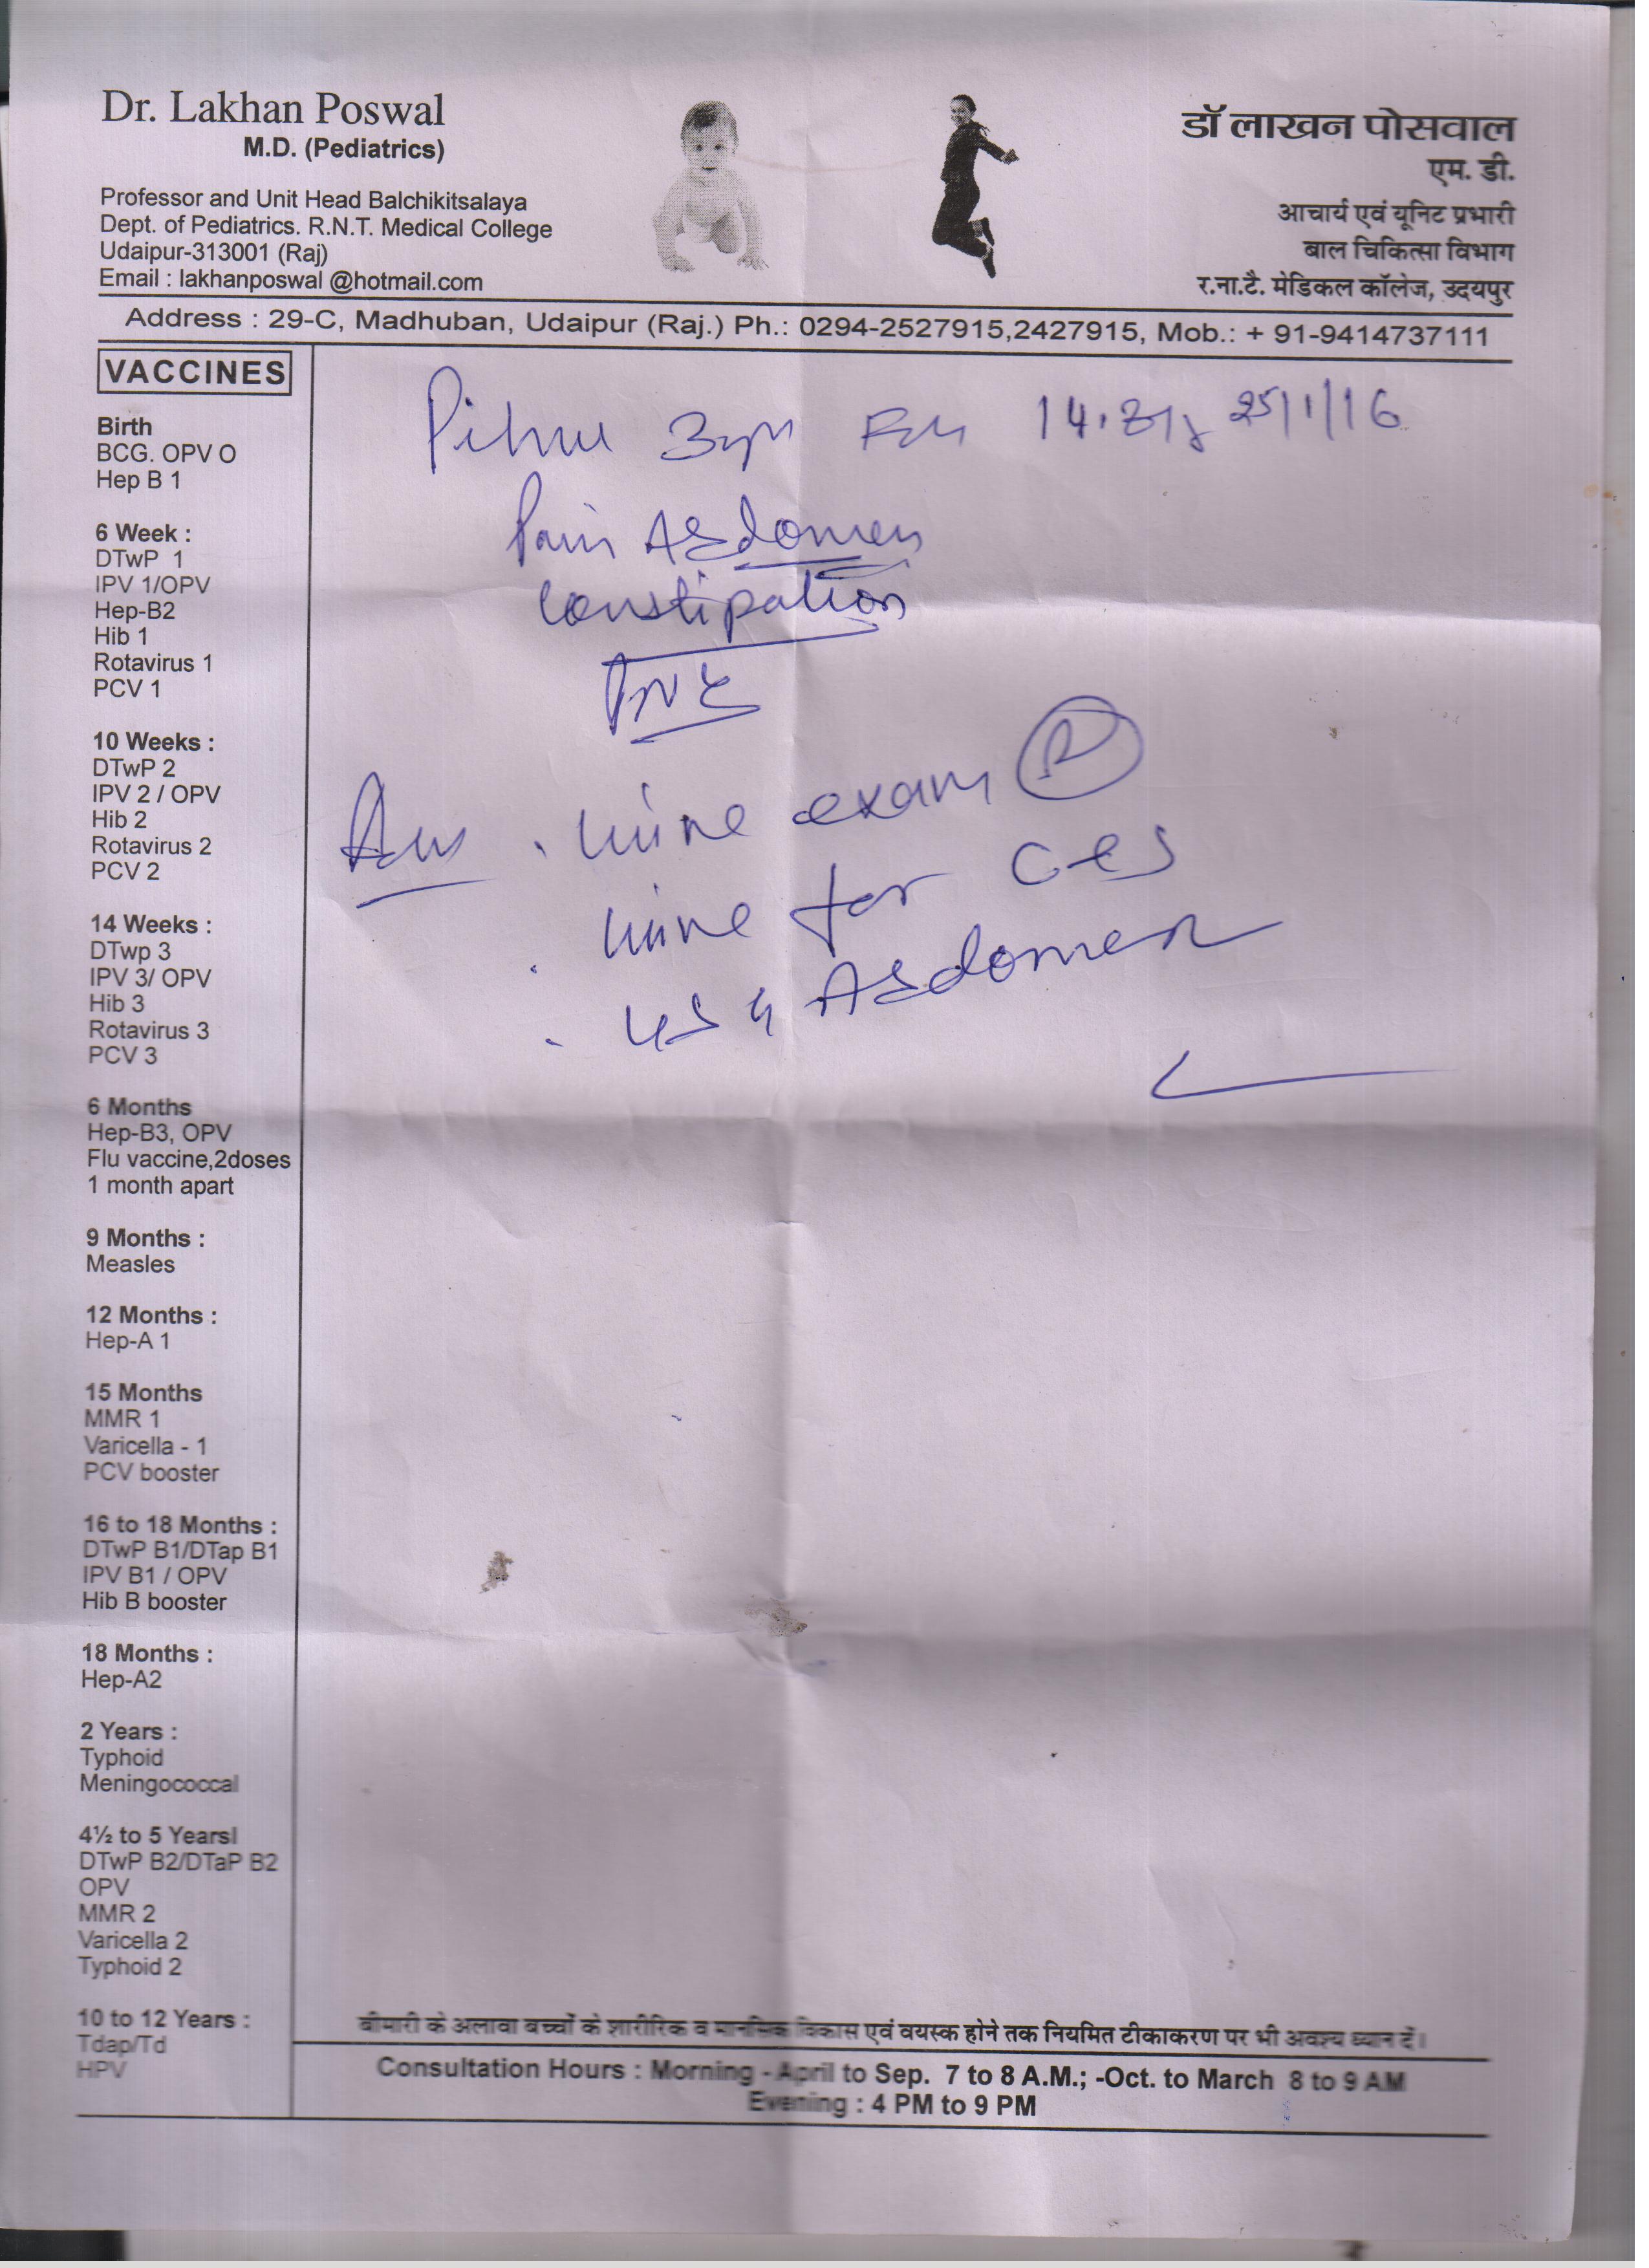 Dr. Lakhan Poswal
M.D. (Pediatrics)
Professor and Unit Head Balchikitsalaya
Dept. of Pediatrics. R.N.T. Medical College
Udaipur-313001 (Raj)
Email : lakhanposwal @hotmail.com
डॉ लाखन पोसवाल
एम. डी.
आचार्य एवं यूनिट प्रभारी
बाल चिकित्सा विभाग
र.ना.टै. मेडिकल कॉलेज, उदयपुर
Address : 29-C, Madhuban, Udaipur (Raj.) Ph.: 0294-2527915,2427915, Mob.: + 91-9414737111
VACCINES
Birth
BCG. OPV O
Hep B 1
6 Week :
DTwP 1
IPV 1/OPV
Hep-B2
Hib 1
Rotavirus 1
PCV 1
10 Weeks :
DTwP 2
IPV 2 / OPV
Hib 2
Rotavirus 2
PCV 2
14 Weeks :
DTwp 3
IPV 3/ OPV
Hib 3
Rotavirus 3
PCV 3
6 Months
Hep-B3, OPV
Flu vaccine,2doses
1 month apart
9 Months :
Measles
12 Months :
Hep-A 1
15 Months
MMR 1
Varicella - 1
PCV booster
16 to 18 Months :
DTwP B1/DTap B1
IPV B1 / OPV
Hib B booster
18 Months :
Hep-A2
2 Years :
Typhoid
Meningococcal
4½ to 5 Yearsl
DTwP B2/DTaP B2
OPV
MMR 2
Varicella 2
Typhoid 2
10 to 12 Years :
Tdap/Td
HPV
Pihu 25/1/16
Pain Abdomen
Constipation
Adv . Urine exam (R)
. Urine for C+S
. USG Abdomen
बीमारी के अलावा बच्चों के शारीरिक व मानसिक विकास एवं वयस्क होने तक नियमित टीकाकरण पर भी अवश्य ध्यान दें।
Consultation Hours : Morning - April to Sep. 7 to 8 A.M.; -Oct. to March 8 to 9 AM
Evening : 4 PM to 9 PM